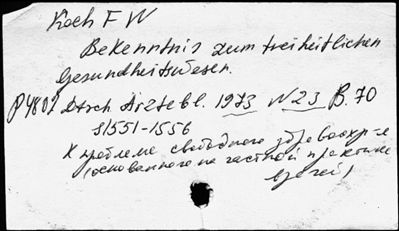 Koch F W
Bekenntnis zum freiheitlichen
Gesundheitswesen.
P4802 Dtsch Ärztebl. 1973 N23 B.70
S1551-1556
К проблеме свободного здравоохр-я
(основанного на частной практике
врачей)